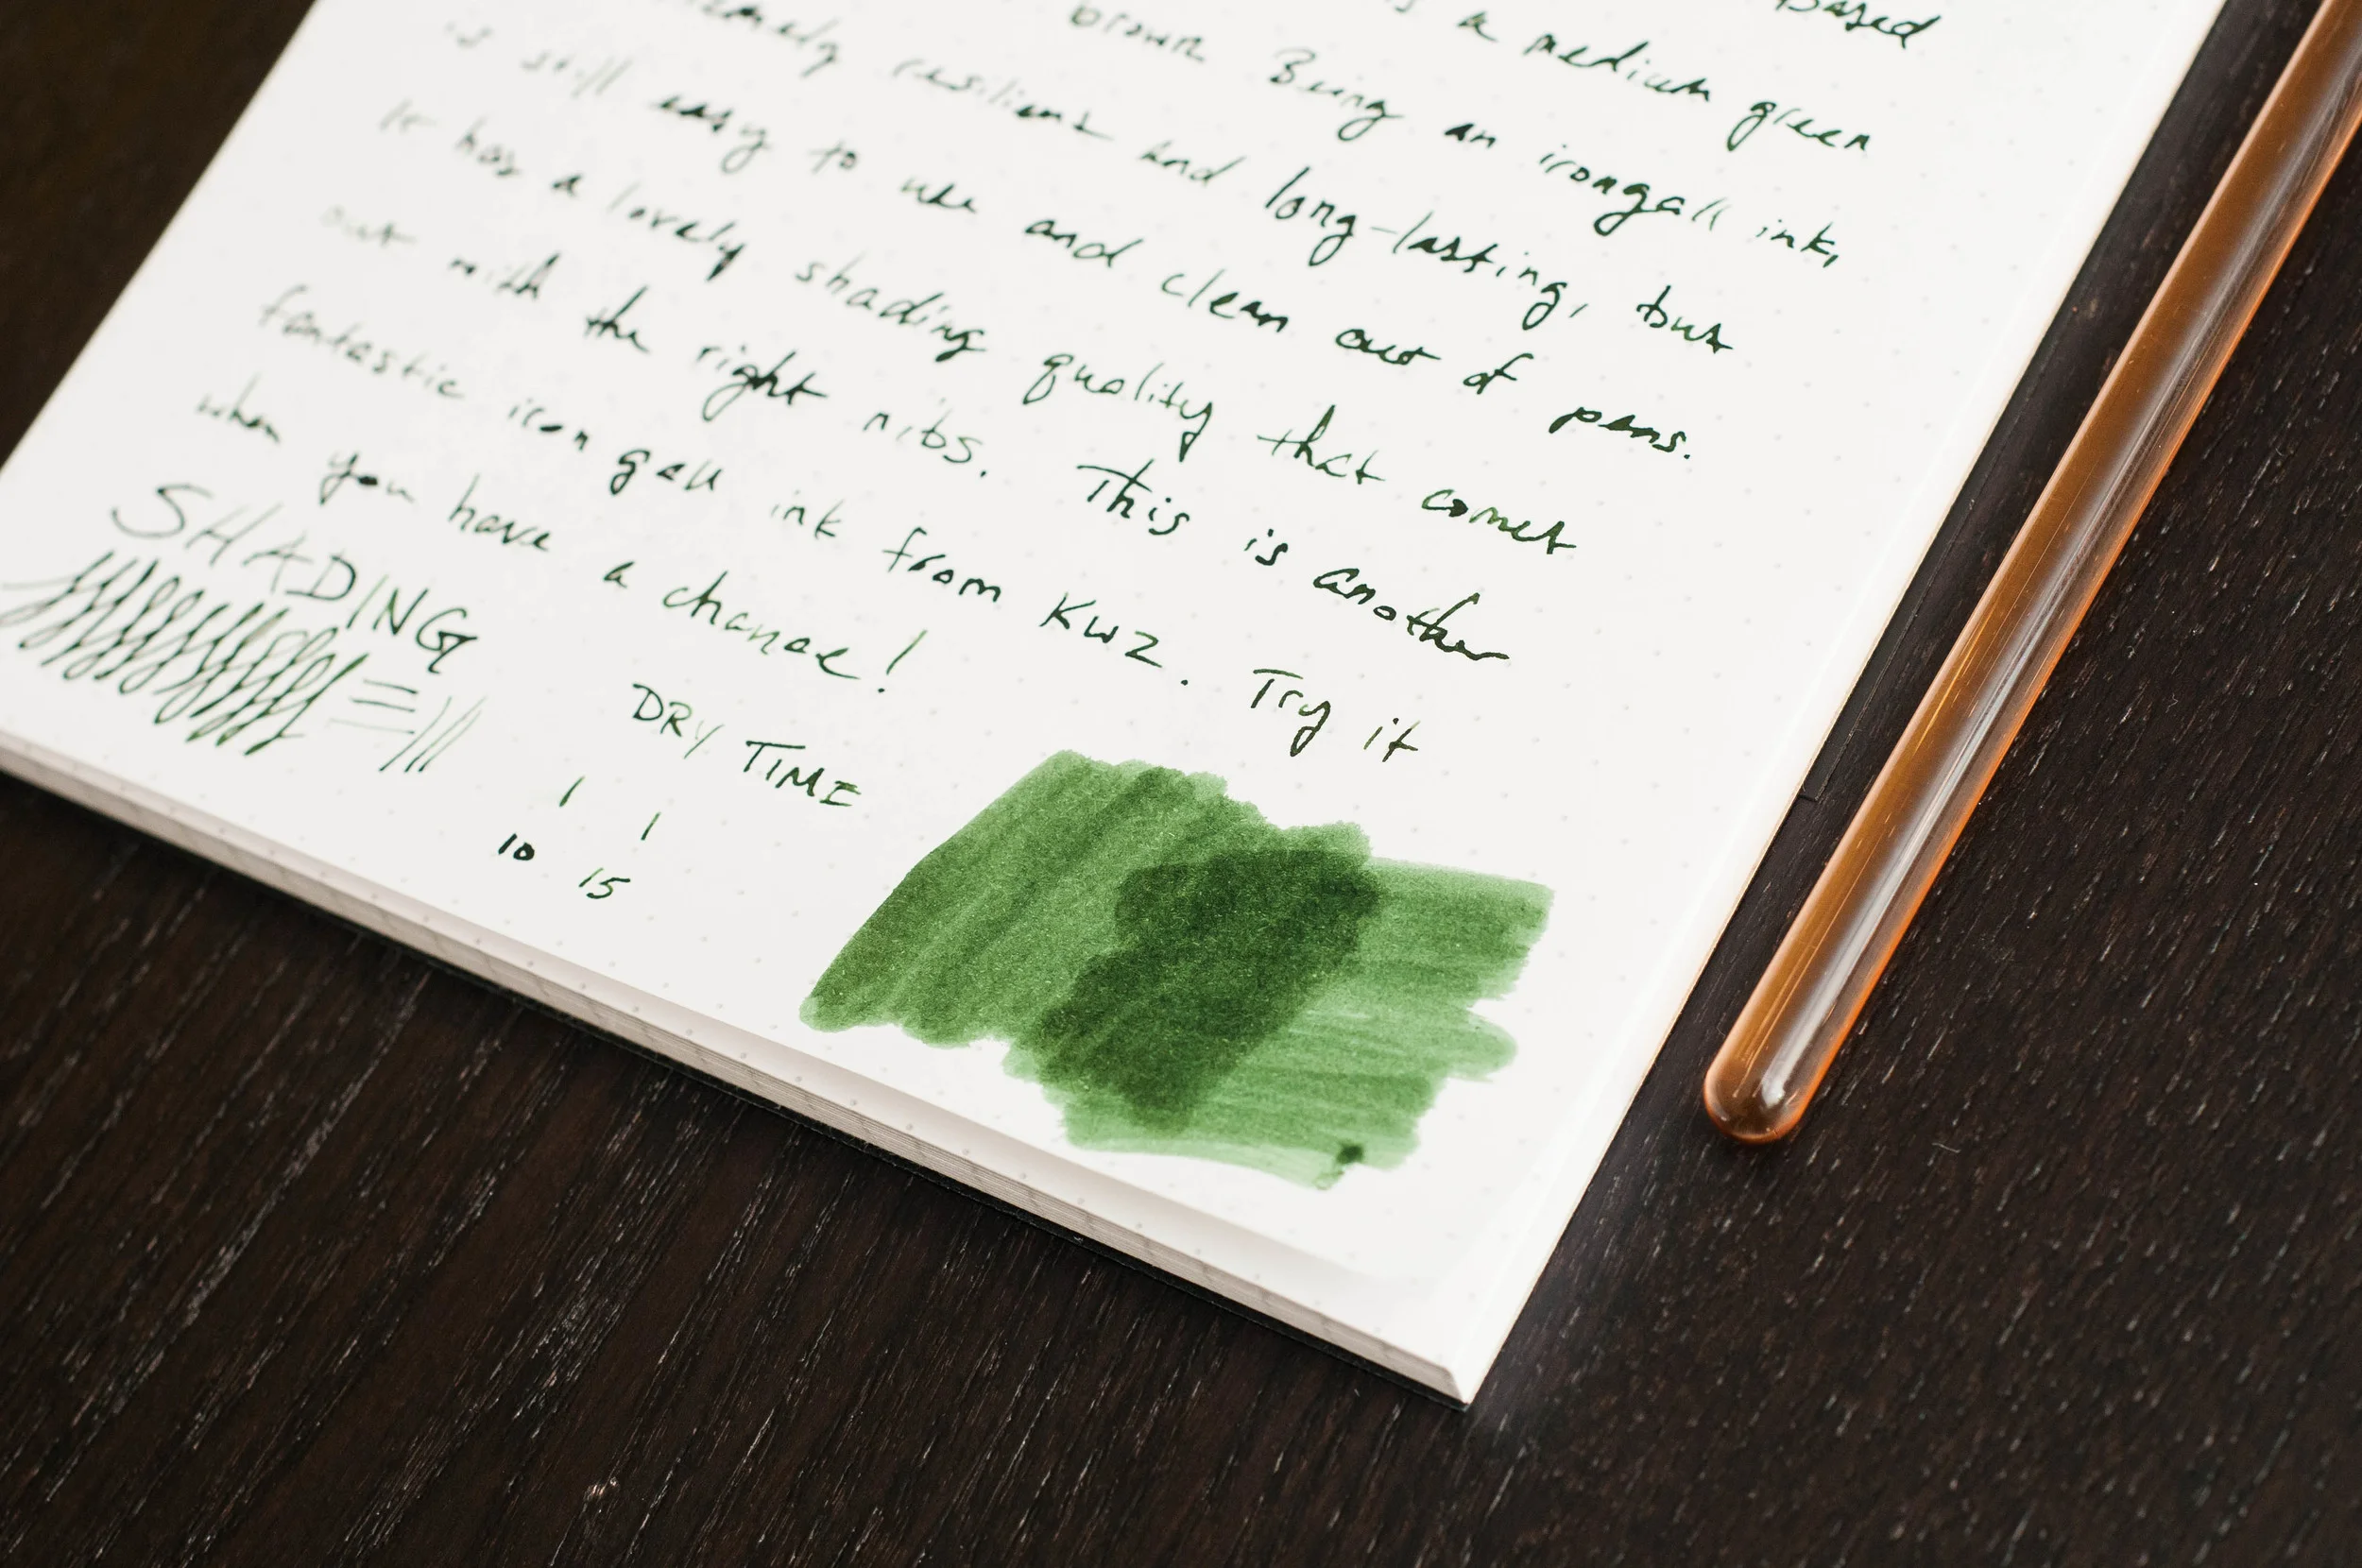 based
a medium green
brown Being an irongall ink,
resilient and long-lasting, but
is still easy to use and clean out of pens.
It has a lovely shading quality that comes
out with the right nibs. This is another
fantastic iron gall ink from KWZ. Try it
when you have a chance!
SHADING
DRY TIME
10 15